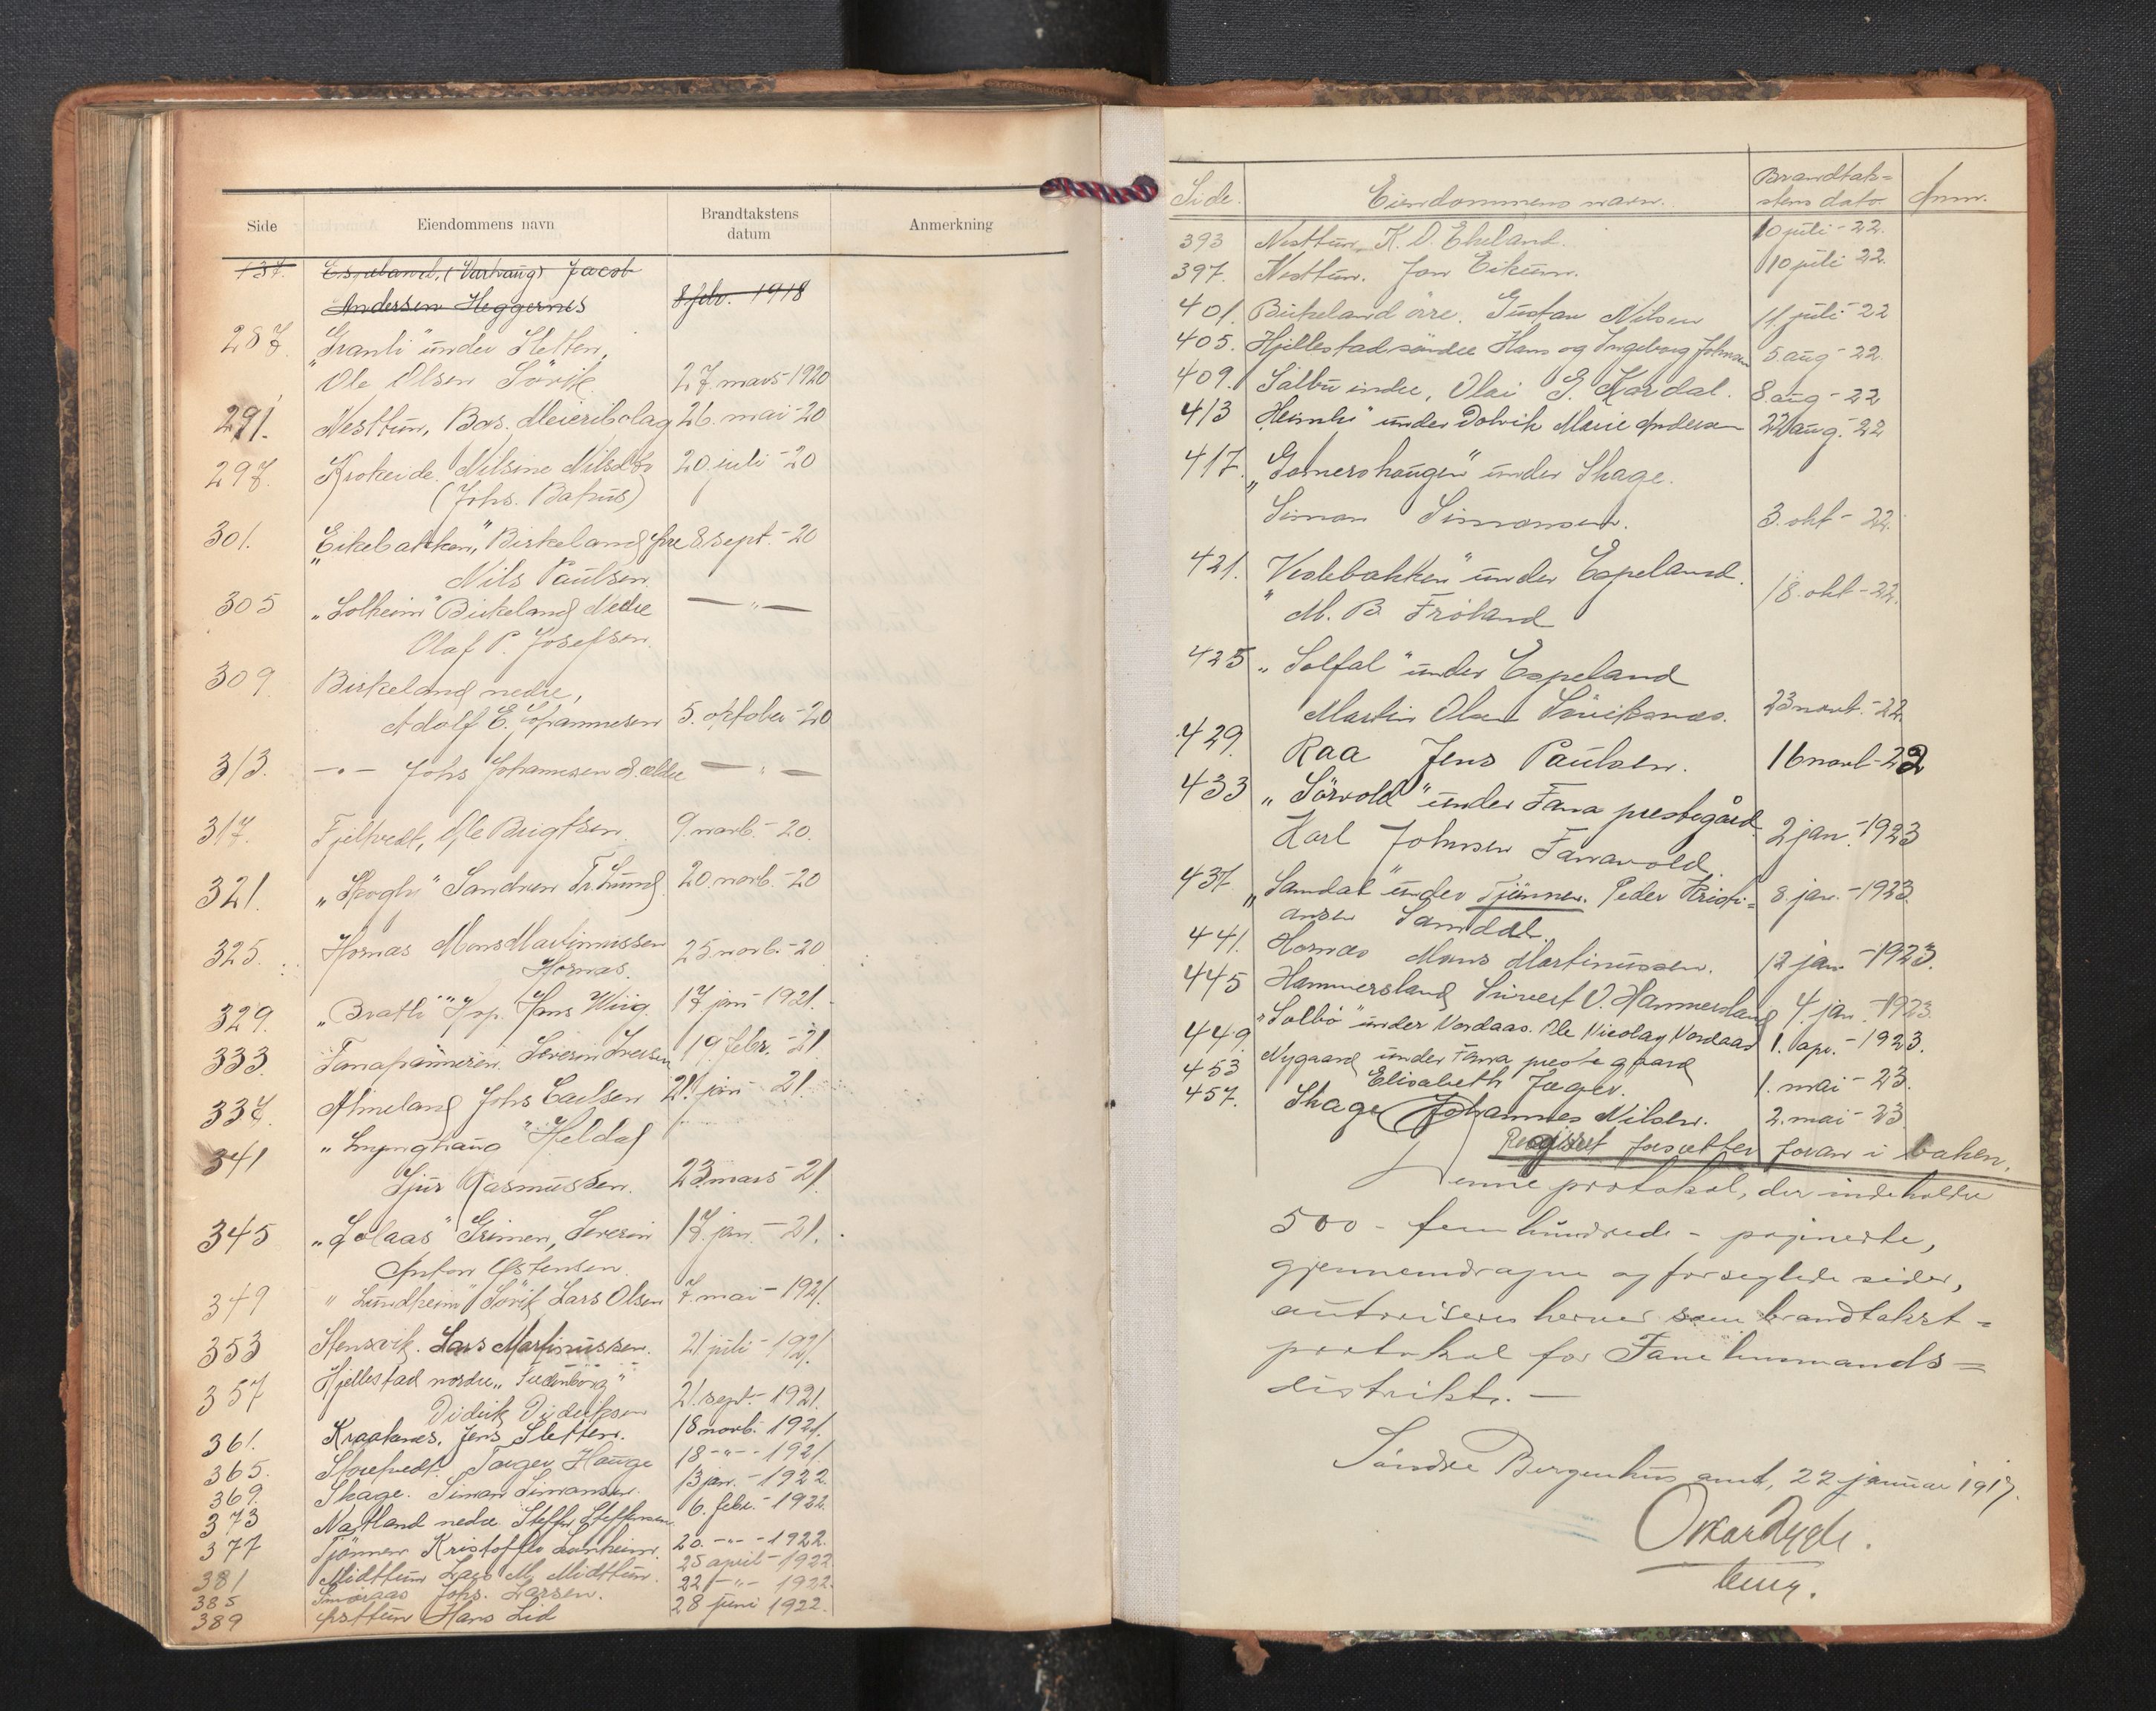 Side Eiendommens navn Brandtakstens datum Anmerkning
137. Espeland, (Varhaug) Jacob
Andersen Heggernes 8. febr. 1918
287. "Granli" under Sletten,
Ole Olsen Sörvik 27. mars 1920
291. Nesttun, Meieribolag 26. mai - 20
297. Krokeide. Nilsine Nilsdtr 20. juli - 20
(Johs. Bahus)
301. "Eikebakken", Birkeland øvre 8 sept. - 20
Nils Paulsen
305 "Solheim" Birkeland Nedre — " —
Olaf P. Josefsen.
309 Birkeland nedre,
Adolf E. Johannesen 5. oktober - 20
313. — " — Johs Johannesen d. eldre — " —
317. Fjeltvedt, Ole 9. novb. - 20.
321. "Skogli" Sandven Tr. Lund 20. novb. - 20
325. Hornæs Mons Martinussen 25 novb. - 20
Hornæs.
329. "Bratli" Hop. Hans Wiig. 17 jan - 1921.
333. Fanahammeren. Severin Iversen 19 febr. - 21
337. Almeland Johs Carlsen 21. jan - 21.
341 "Lynghaug" Heldal
Sjur Rasmussen. 23. mars - 21.
345 "Solaas" Grimen, Severin 17. jan. - 21.
Anton Østensen.
349 "Lundheim" Sörvik Lars Olsen 7. mai - 1921.
353 Stensvik. Lars Martinussen. 21 juli - 1921.
357 Hjellestad nordre,
Didrik Didriksen 21. sept. - 1921.
361. Kraaknes, Jens Sletten. 18 novb. - 1921.
365. Torger Hauge 18 - " - 1921.
369. Skage. Simon Simonsen. 13 jan. - 1922.
373 Natland nedre Steffen Steffensen. 6. febr. - 1922.
377 Tjönnen Kristoffer 20. - " - 1922.
381 Midttun Lars M. Midttun. 25 april - 1922
385 Smöraas Johs. Larsen. 22. - " - 1922.
389 Østtun Hans Lid 28 juni 1922.
Side. Eiendommens navn. Brandtak=
stens dato. Anm.
393 Nesttun, K. O. Ekeland. 10 juli - 22.
397. Nesttun. Jon Eikum. 10 juli 22.
401. Birkeland övre. Gustav Nilsen 11. juli - 22
405. Hjellestad söndre Hans og Ingeborg Johnsen 5. aug - 22.
409. Sælbu indre, Olai G. Kardal. 8. aug - 22
413 "Heimli" under Dolvik Marie Andersen 22 aug. - 22
417. under Skage.
Simon Simonsen. 3. okt - 22.
421. "Veslebakken" under Espeland.
M. B. Fröland 18. okt - 22.
425 "Solfal" under Espeland
Martin Olsen Sörviksnæs. 23 novb. - 22.
429. Raa Jens Paulsen. 16 novb - 22
433 "Sörvold" under Fana prestegård.
Karl Johnsen Fanavold. 2 jan. - 1923
437. "Samdal" under Tjönnen. Peder Kristi= 8. jan. - 1923.
ansen Samdal.
441. Hornæs Mons Martinussen. 12 jan - 1923.
445 Hammersland Sivert O. Hammersland 4. jan. - 1923.
449. "Solbö" under Vordaas. Ole Nicolay Vordaas 1. apr. - 1923.
453 Nygaard under Fana prestegaard
Elisabeth Jæger. 1. mai - 23.
457. Skage Johannes Nilsen. 2. mai - 23.
Registret forsætter foran i boken.
Denne protokol, der indeholder
500 - fem hundrede - paginerte,
gjennemdragne og forseglede sider,
autoriseres herved som brandtakst=
protokol for Fane lensmands=
distrikt. —
Söndre Bergenhus amt, 22 januar 1917.